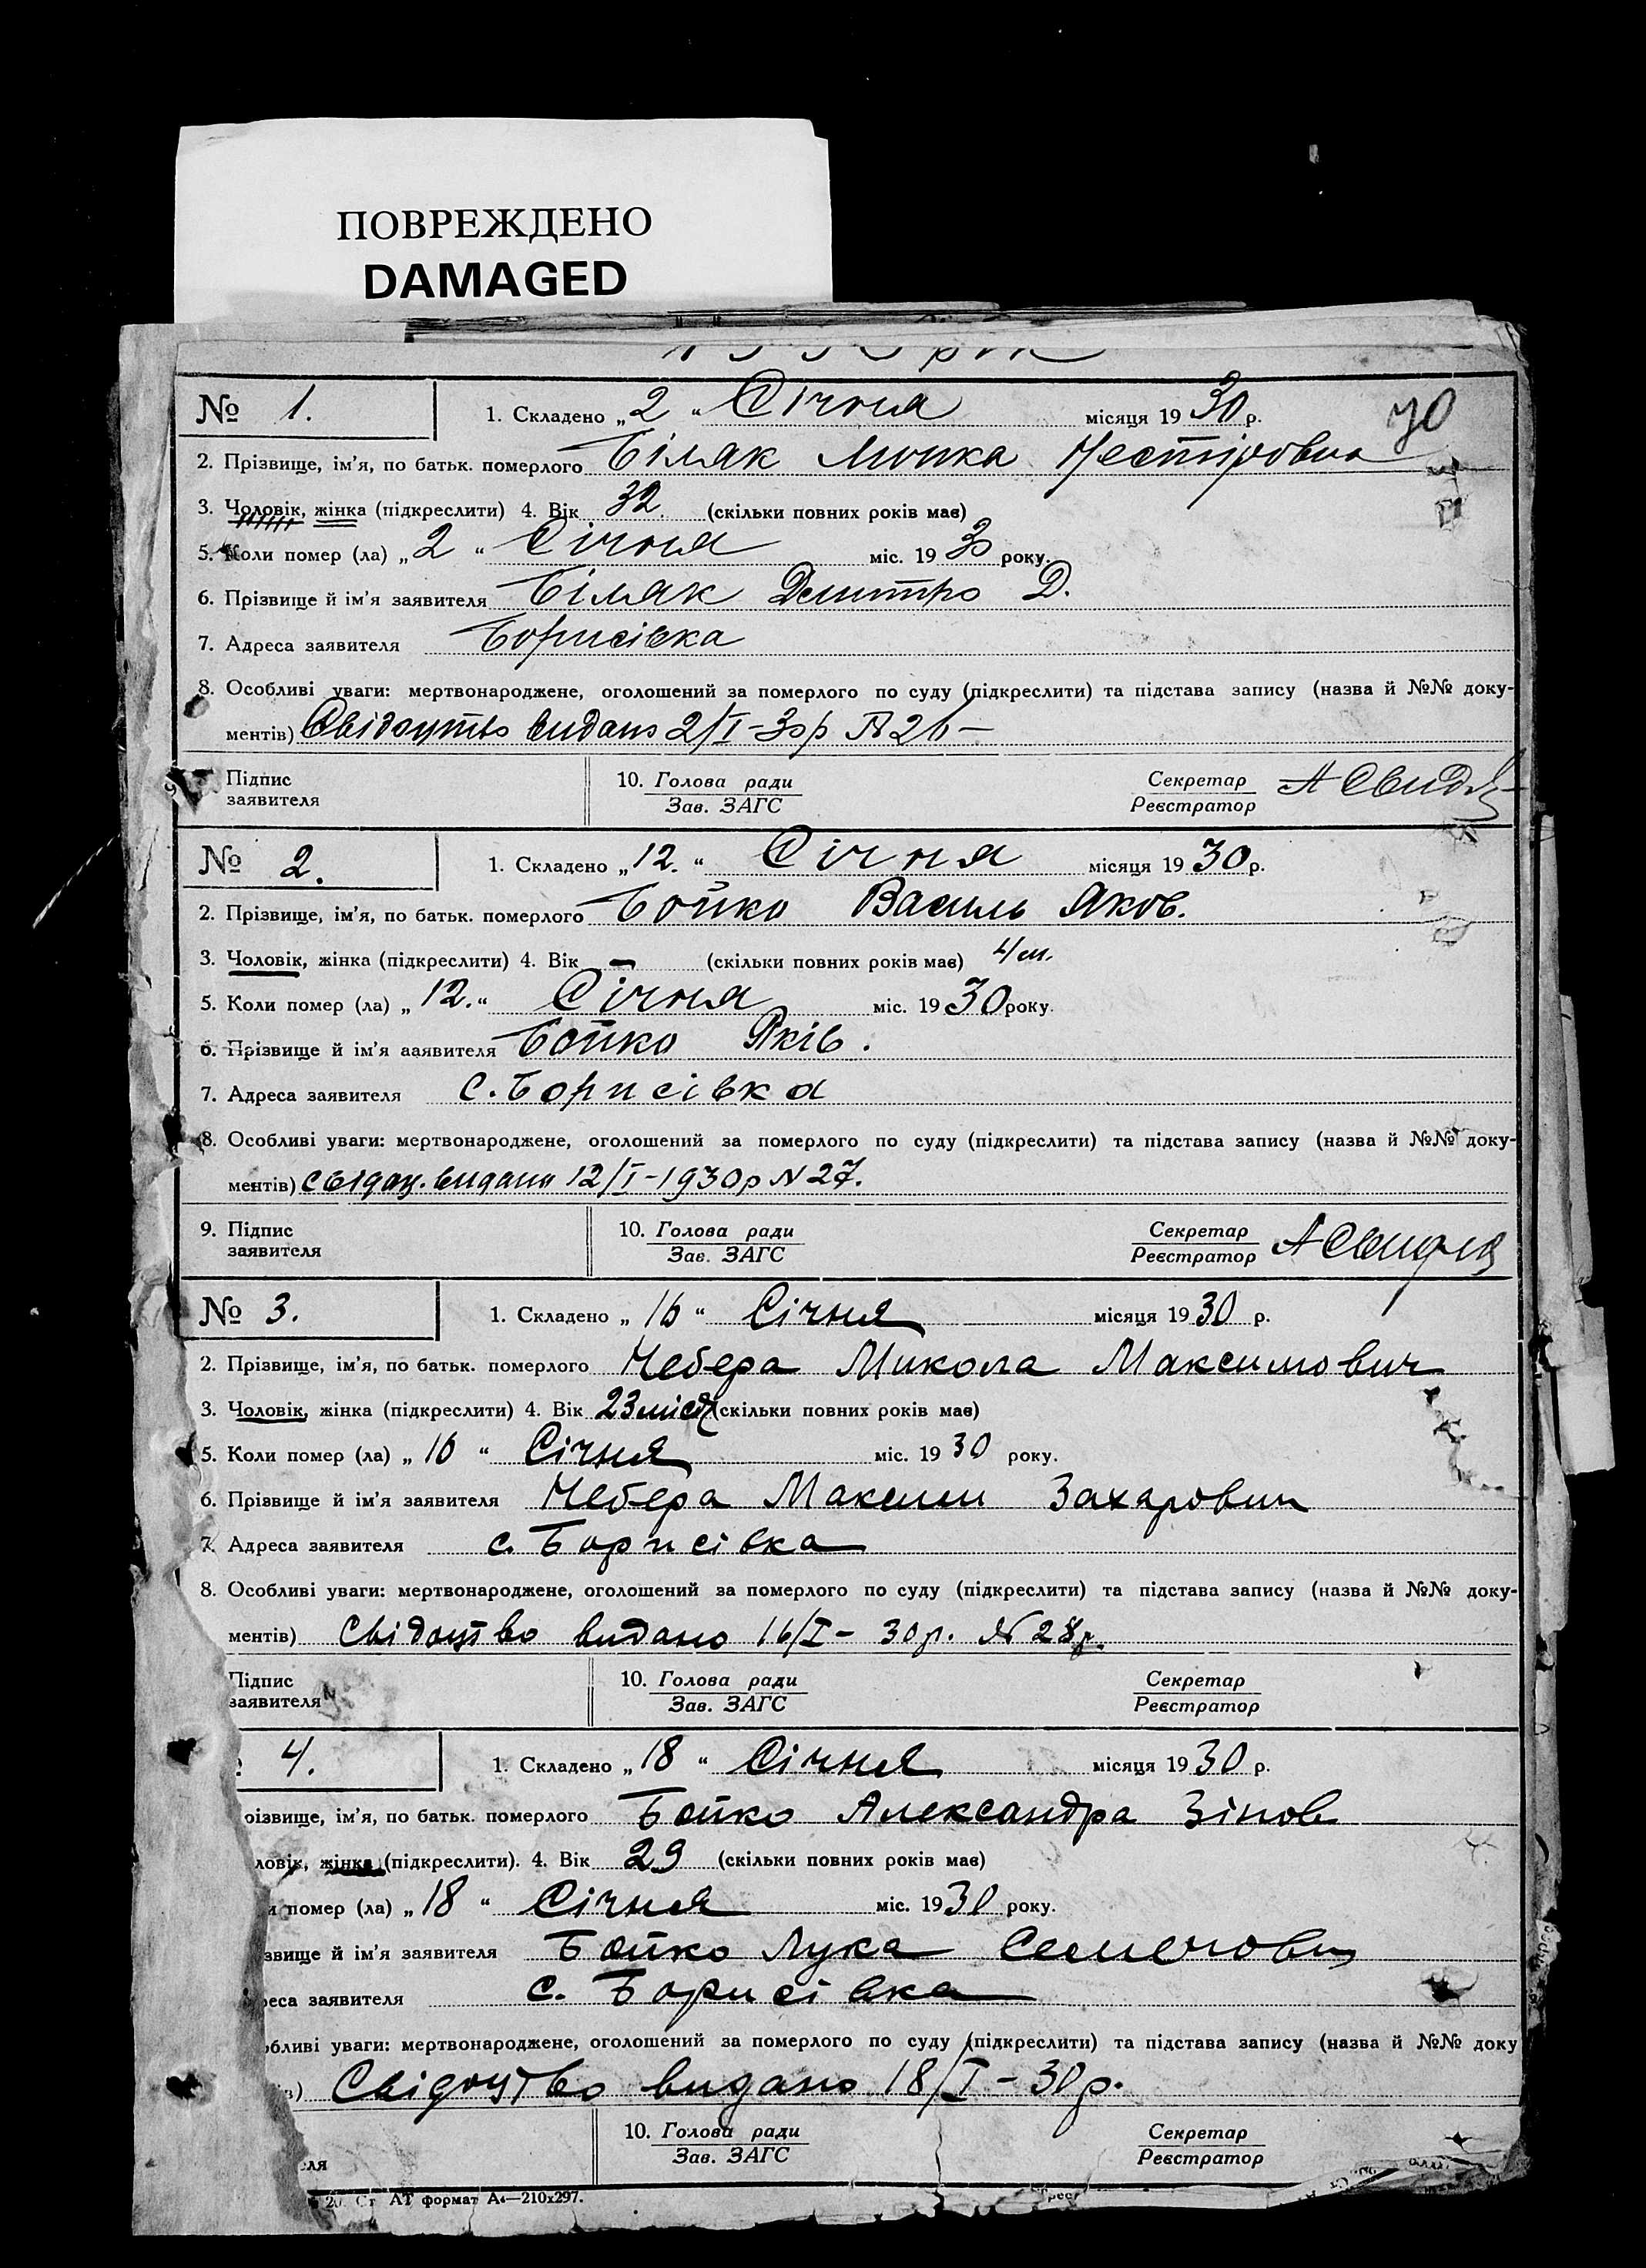 ПОВРЕЖДЕНО
DAMAGED
№ 1. 1. Складено „ 2 “ Січня місяця 19 30 р. 70
2. Прізвище, ім’я, по батьк. померлого Біляк Нестіровна
3. Чоловік, жінка (підкреслити) 4. Вік 32 (скільки повних років має)
5. Коли помер (ла) „ 2 “ Січня міс. 19 30 року.
6. Прізвище й ім’я заявителя Біляк Дмитро Д.
7. Адреса заявителя Борисівка
8. Особливі уваги: мертвонароджене, оголошений за померлого по суду (підкреслити) та підстава запису (назва й №№ доку-
ментів) Свідоцтво видано 2/I-30р № 26 –
Підпис 10. Голова ради Секретар
заявителя Зав. ЗАГС Реєстратор
№ 2. 1. Складено „ 12. “ Січня місяця 19 30 р.
2. Прізвище, ім’я, по батьк. померлого Бойко Василь Яков.
3. Чоловік, жінка (підкреслити) 4. Вік – (скільки повних років має) 4 м.
5. Коли помер (ла) „ 12. “ Січня міс. 19 30 року.
6. Прізвище й ім’я заявителя Бойко Яків.
7. Адреса заявителя с. Борисівка
8. Особливі уваги: мертвонароджене, оголошений за померлого по суду (підкреслити) та підстава запису (назва й №№ доку-
ментів) свідоц. видано 12/I-1930р N 27.
9. Підпис 10. Голова ради Секретар
заявителя Зав. ЗАГС Реєстратор
№ 3. 1. Складено „ 16 “ Січня місяця 19 30 р.
2. Прізвище, ім’я, по батьк. померлого Чебера Микола Максимович
3. Чоловік, жінка (підкреслити) 4. Вік 23 місяц (скільки повних років має)
5. Коли помер (ла) „ 16 “ Січня міс. 19 30 року.
6. Прізвище й ім’я заявителя Чебера Максим Захарович
7. Адреса заявителя с. Борисівка
8. Особливі уваги: мертвонароджене, оголошений за померлого по суду (підкреслити) та підстава запису (назва й №№ доку-
ментів) Свідоцтво видано 16/I- 30р. № 28р.
Підпис 10. Голова ради Секретар
заявителя Зав. ЗАГС Реєстратор
4. 1. Складено „ 18 “ Січня місяця 19 30 р.
різвище, ім’я, по батьк. померлого Бойко Александра Зінов
ловік, жінка (підкреслити). 4. Вік 29 (скільки повних років має)
и помер (ла) „ 18 “ Січня міс. 19 30 року.
звище й ім’я заявителя Бойко Лука Семенович
реса заявителя с. Борисівка
обливі уваги: мертвонароджене, оголошений за померлого по суду (підкреслити) та підстава запису (назва й №№ доку
в) Свідоцтво видано 18/I-30р.
10. Голова ради Секретар
ля Зав. ЗАГС Реєстратор
АТ формат А4—210x297.